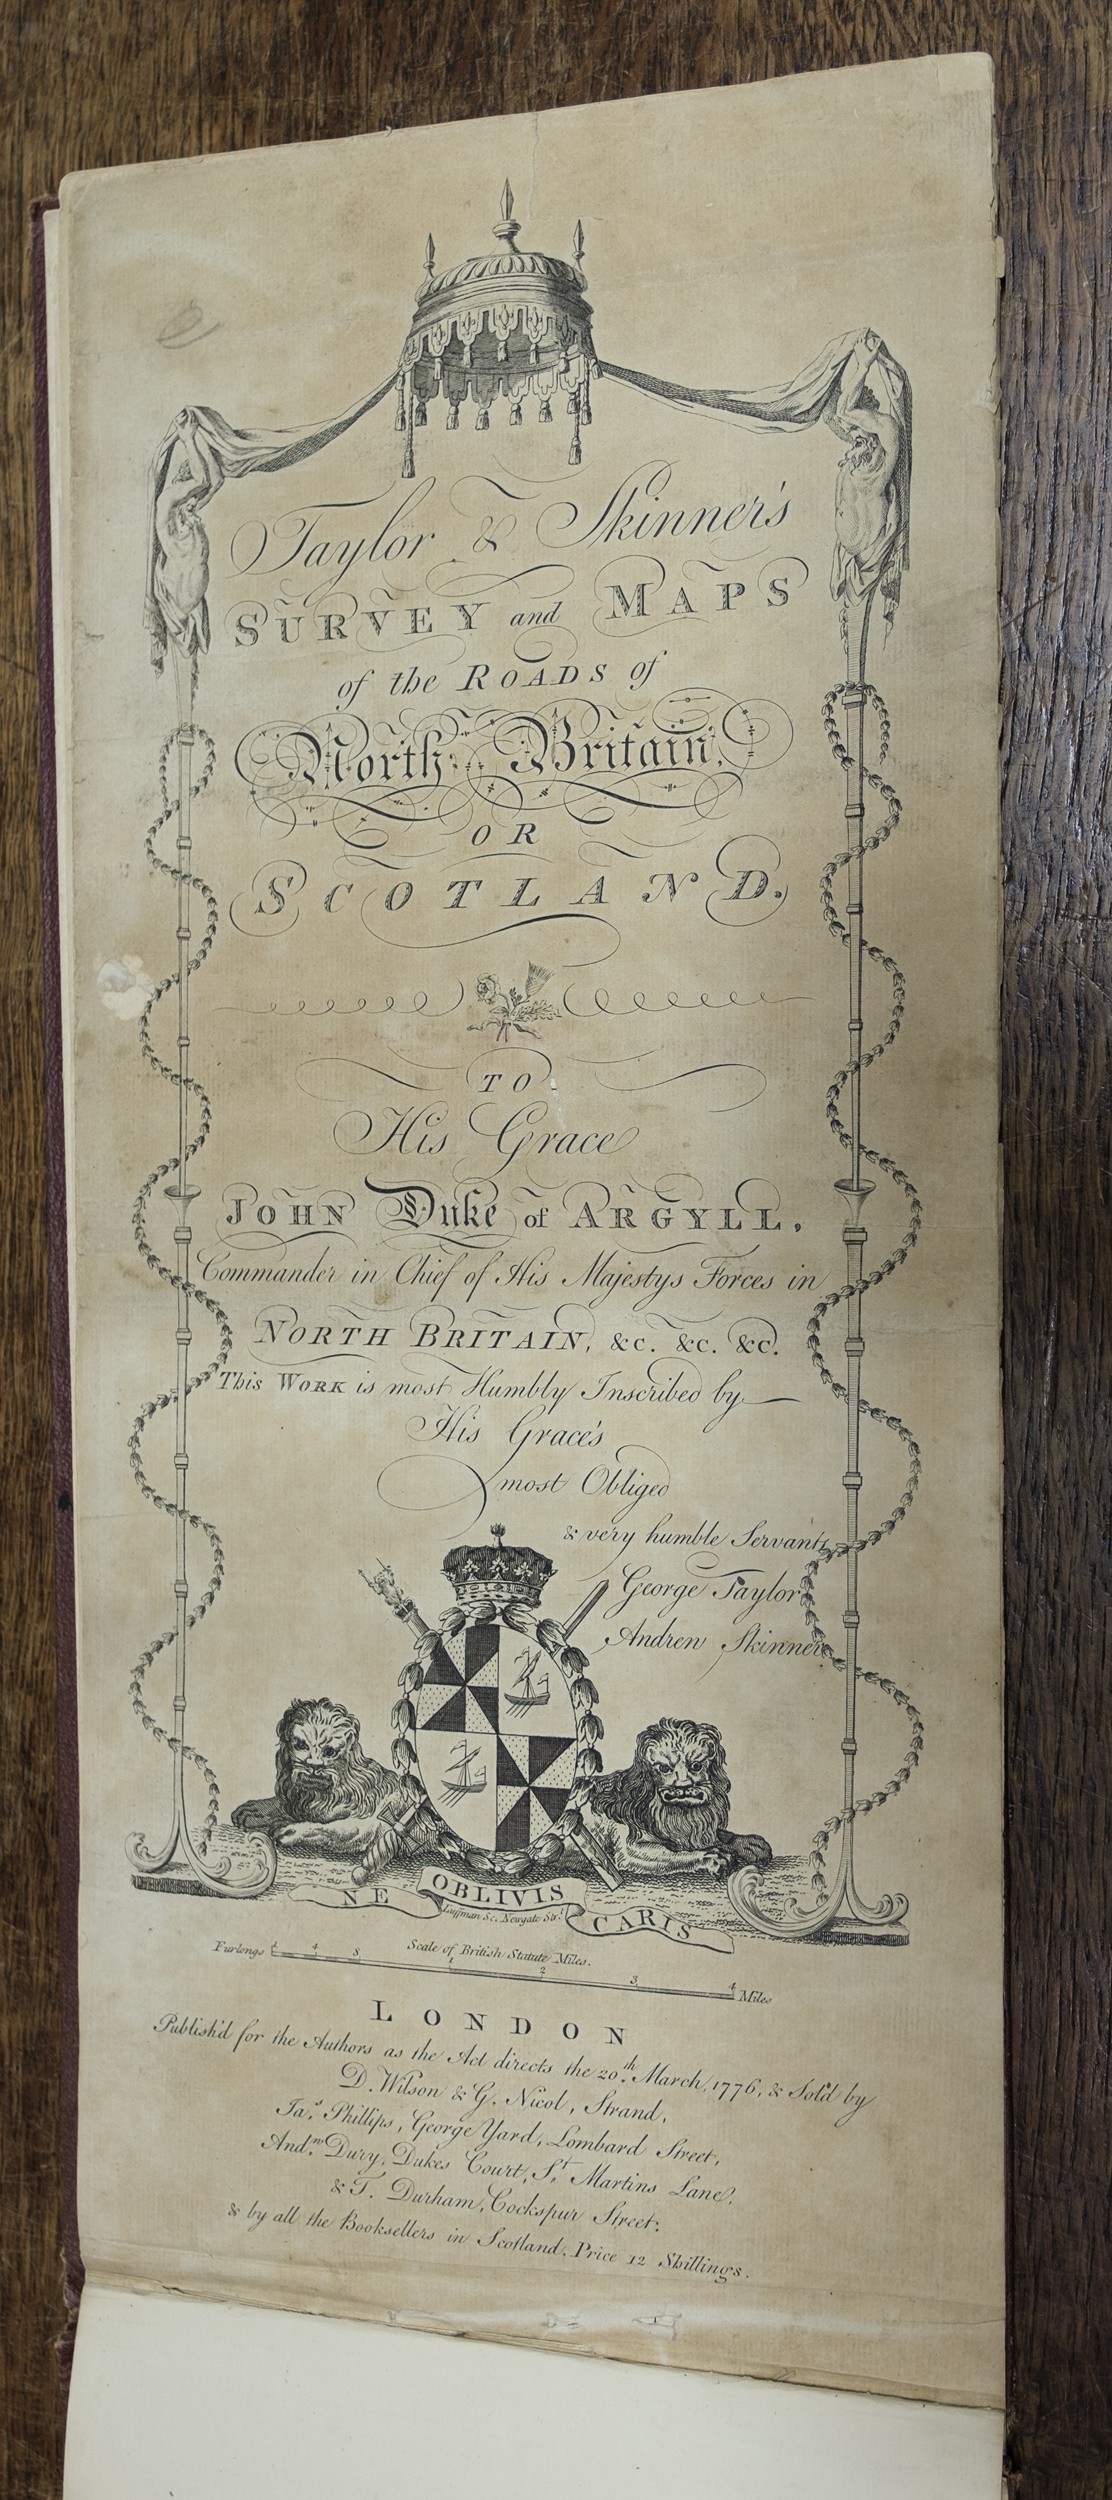 Taylor & Skinner's
SURVEY and MAPS
of the ROADS of
North Britain,
OR
SCOTLAND.
TO
His Grace
JOHN Duke of ARGYLL,
Commander in Chief of His Majestys Forces in
NORTH BRITAIN, &c. &c. &c.
This WORK is most Humbly Inscribed by
His Grace's
most Obliged
& very humble Servants
George Taylor
Andrew Skinner
NE OBLIVIS CARIS
Luffman Sc. Newgate Strt.
Scale of British Statute Miles.
Furlongs 4 8 1 2 3 4 Miles
LONDON
Publish'd for the Authors as the Act directs the 20th. March, 1776, & Sold by
D. Wilson & G. Nicol, Strand,
Jas. Phillips, George Yard, Lombard Street,
Andw. Dury, Dukes Court, St. Martins Lane,
& T. Durham, Cockspur Street:
& by all the Booksellers in Scotland. Price 12 Shillings.